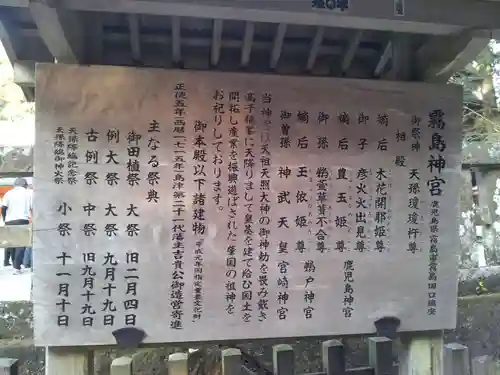 霧島神宮 鹿児島県霧島市霧島田口鎮座
御祭神 天孫瓊瓊杵尊
相殿
嫡后 木花開耶姫尊
御子 彦火火出見尊
嫡后 豊玉姫尊 鹿児島神宮
御孫 鸕鶿草葺不合尊 鵜戸神宮
嫡后 玉依姫尊
御曽孫 神武天皇 宮崎神宮
当神宮は天祖天照大神の御神勅を畏み戴き
高千穂峯に天降りまして皇基を建て給ひ国土を
開拓し産業を振興遊ばされた肇国の祖神を
お祀りしております。
御本殿以下諸建物「平成元年国指定重要文化財」
正徳五年西暦一七一五年島津第二十一代藩主吉貴公御造営寄進
主なる祭典
御田植祭 大祭 旧二月四日
例大祭 大祭 九月十九日
古例祭 中祭 旧九月十九日
天孫降臨記念祭
天孫降臨御神火祭 小祭 十一月十日